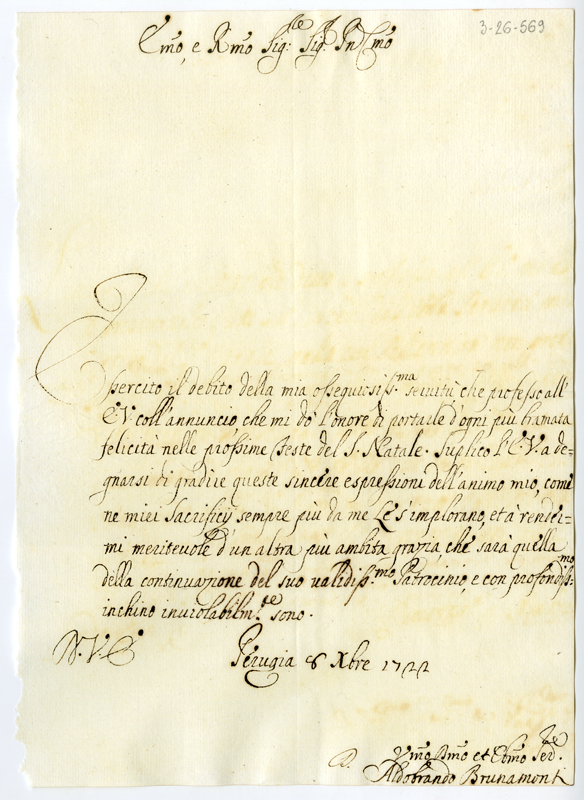 3-26-569
Emo, e Rmo Sig:re Sig. Pn Cmo
Esercito il debito della mia ossequiosiss.ma servitù, che professo all'
E.V. coll'annuncio, che mi dò l'onore di portarle d'ogni più bramata
felicità nelle prossime Feste del S. Natale. Suplico l'E.V. a de=
gnarsi di gradire queste sincere espressioni dell'animo mio, come
ne miei Sacrificij sempre più da me Le s'implorano, et à render=
mi meritevole d'un altra più ambita grazia, che sarà quella
della continuazione del suo validiss.mo Patrocinio, e con profondiss.mo
inchino inviolabilm.te sono.
Perugia 8 Xbre 1722
Vmo Dmo et Obmo Ser.re
Aldobrando Brunamonti